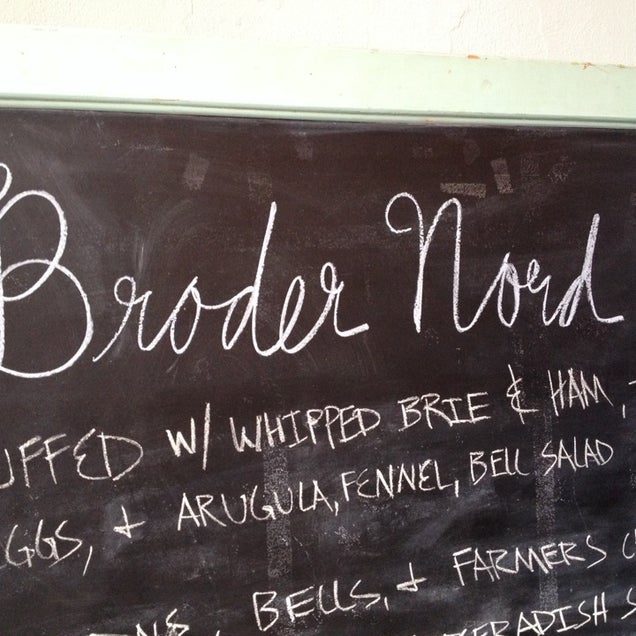 Broder Nord
UFFED W/ WHIPPED BRIE & HAM,
GGS, & ARUGULA, FENNEL, BELL SALAD
BELLS, & FARMERS C
ERADISH S